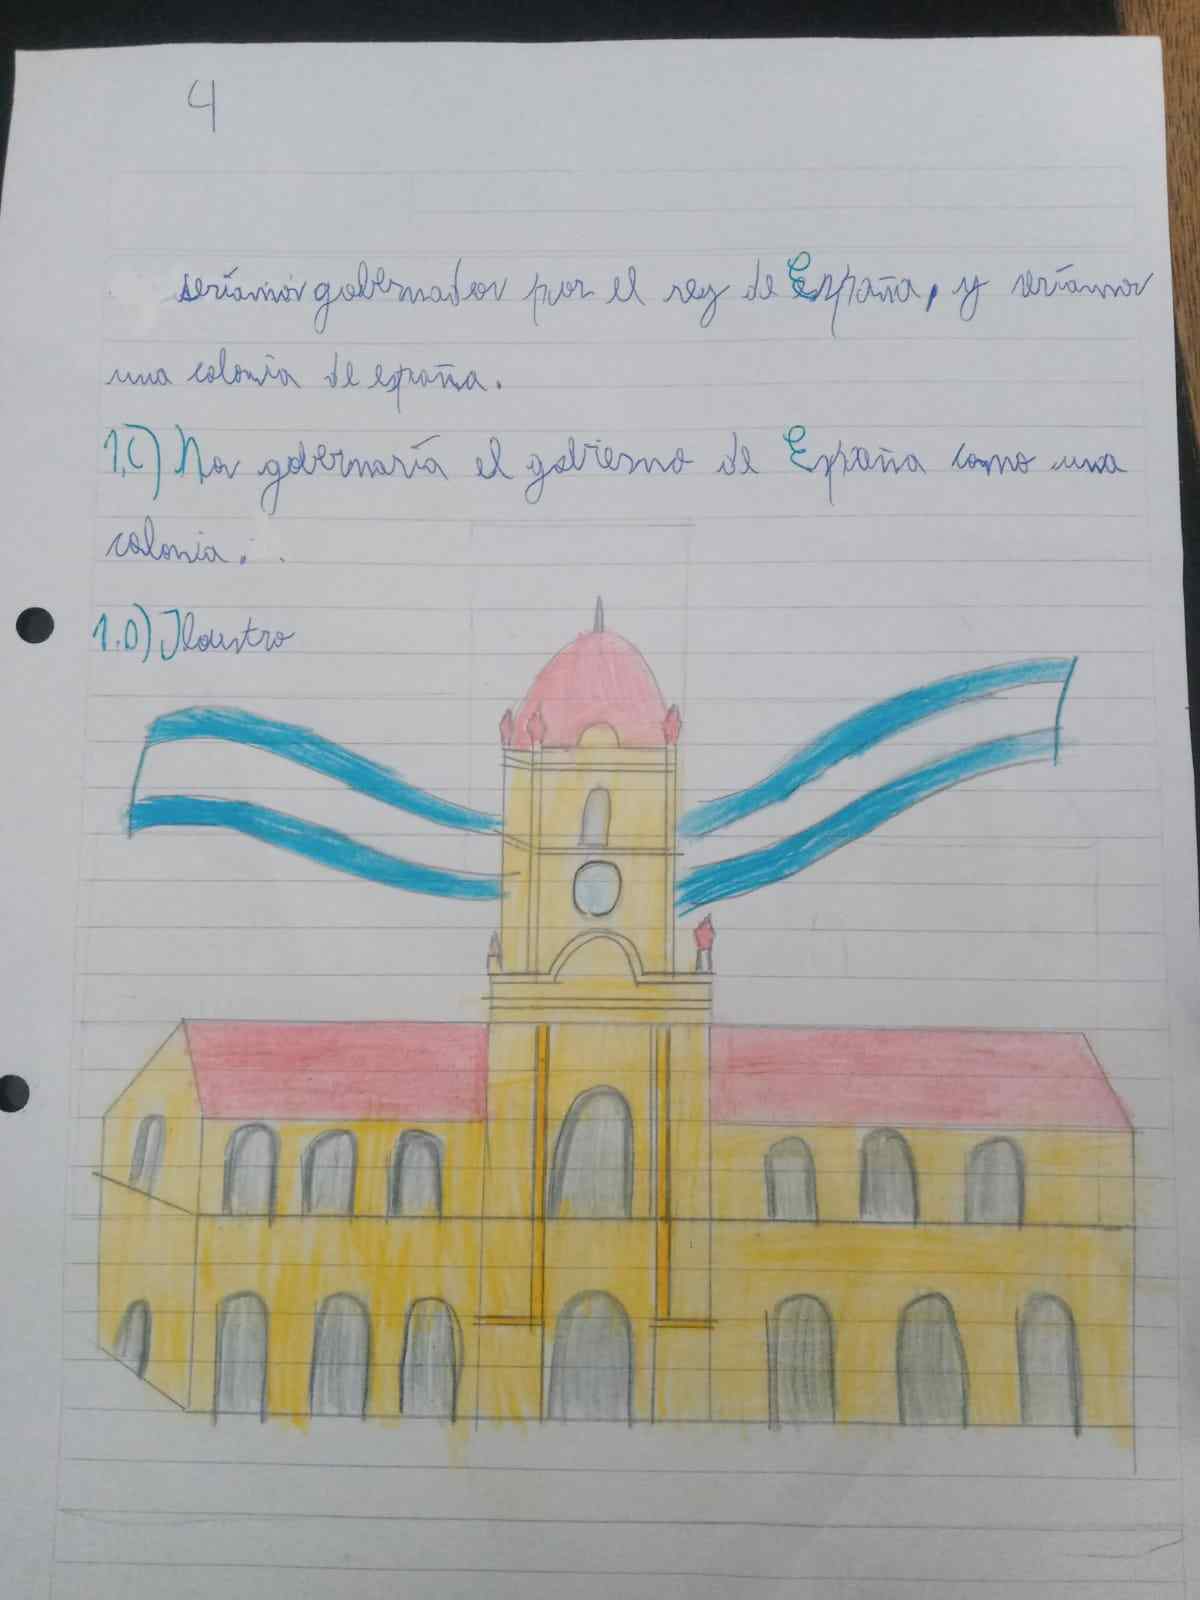 4
seríamos gobernados por el rey de España, y seríamos
una colonia de españa.
1.C) Nos gobernaría el gobierno de España como una
colonia.
1.D) Ilustro